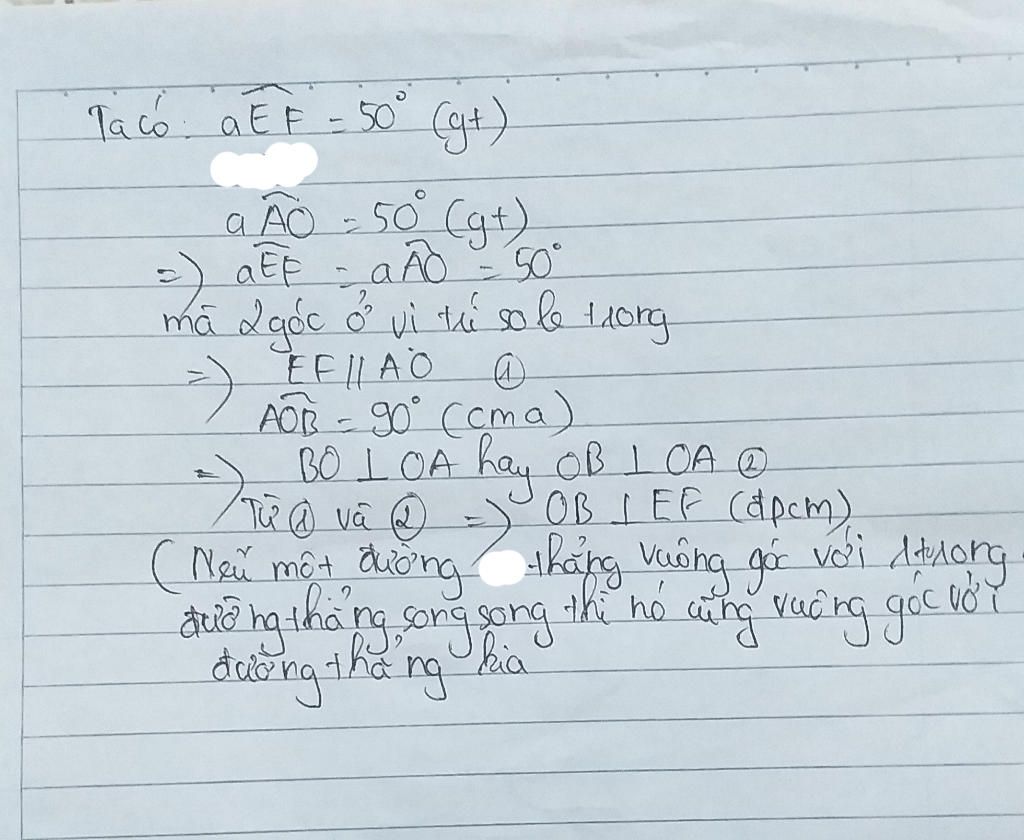 Ta có: aEF = 50° (gt)
aAO = 50° (gt)
=> aEF = aAO = 50°
mà 2 góc ở vị trí so le trong
=> EF // AO ①
AOB = 90° (cma)
=> BO ⊥ OA hay OB ⊥ OA ②
Từ ① và ② => OB ⊥ EF (đpcm)
(Nếu một đường thẳng vuông góc với 1 trong
đường thẳng song song thì nó cũng vuông góc với
đường thẳng kia